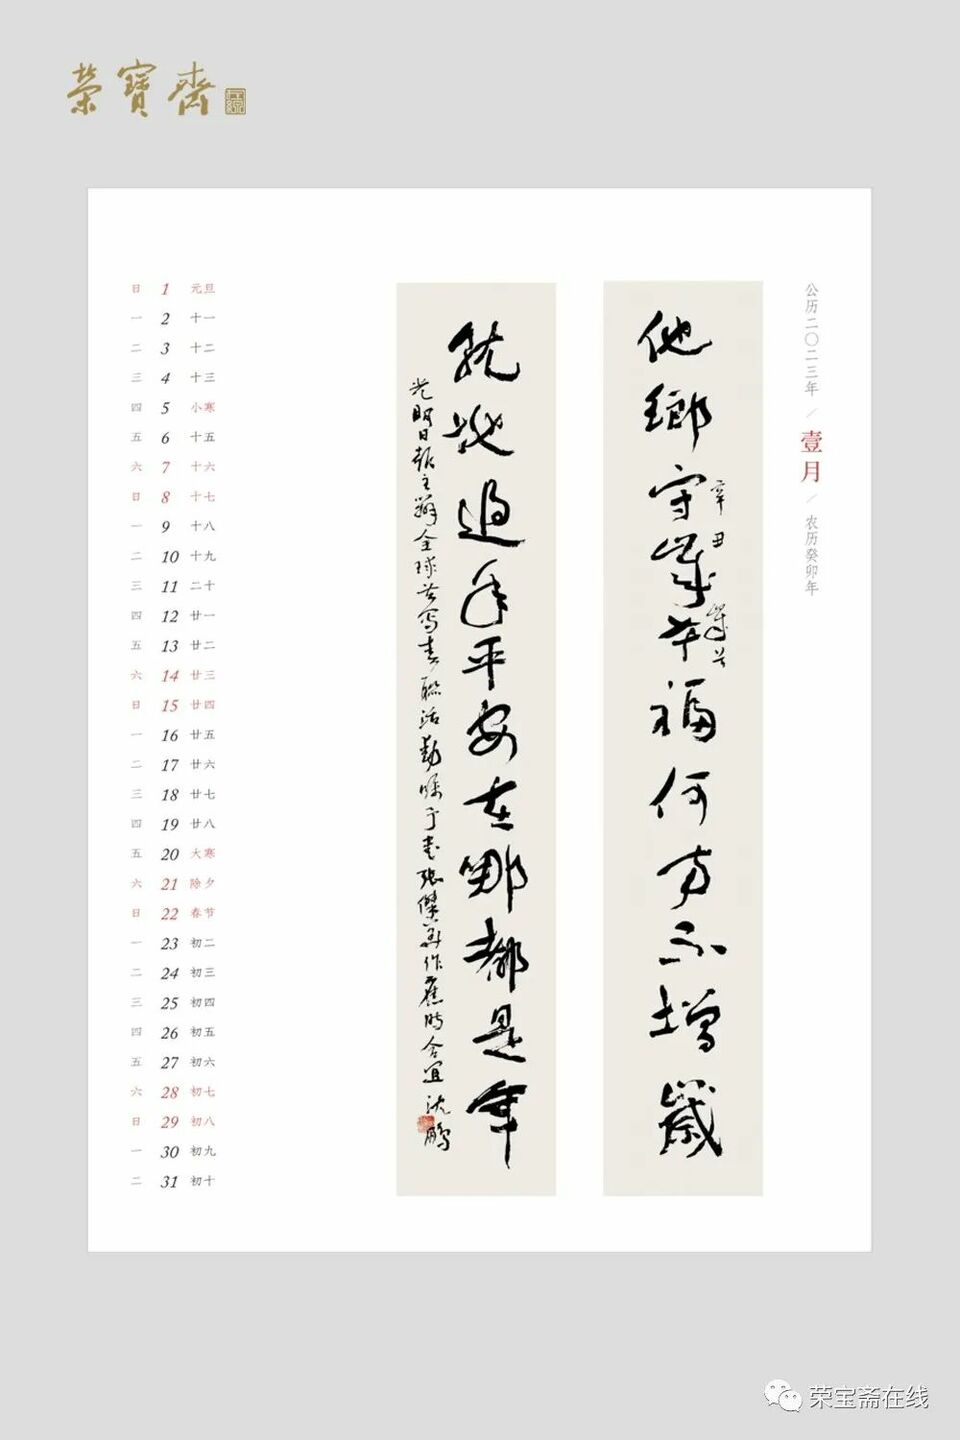 榮寶齋
公历二〇二三年／壹月／农历癸卯年
他鄉守歲幸福何方不增歲
辛丑歲首
就地過年平安在哪都是年
光明日報主辦全球共寫春聯活動囑予書張傑
作舊時合宜 沈鵬
日 1 元旦
一 2 十一
二 3 十二
三 4 十三
四 5 小寒
五 6 十五
六 7 十六
日 8 十七
一 9 十八
二 10 十九
三 11 二十
四 12 廿一
五 13 廿二
六 14 廿三
日 15 廿四
一 16 廿五
二 17 廿六
三 18 廿七
四 19 廿八
五 20 大寒
六 21 除夕
日 22 春节
一 23 初二
二 24 初三
三 25 初四
四 26 初五
五 27 初六
六 28 初七
日 29 初八
一 30 初九
二 31 初十
荣宝斋在线